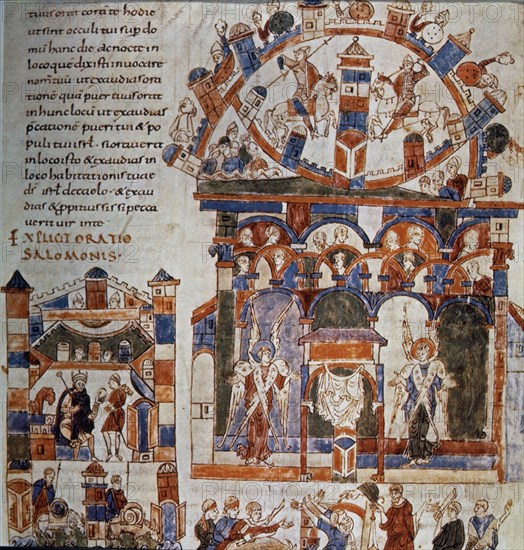 tuus orat corā te hodie
ut sint occuli tui sup do
mū hanc die ac nocte in
loco quē dixisti invocare
nomen tuū ut exaudias ora
tionē quā puer tuus orat
in hunc locū ut exaudias
p̄cationē pueri tui & po
puli tui isrl. si oraverit
in loco isto & exaudias in
loco habitationis tuae
ds isrl de caelo. & exau
dias & ppitius sis si pecca
verit vir inte
EXPLICIT ORATIO
SALOMONIS.